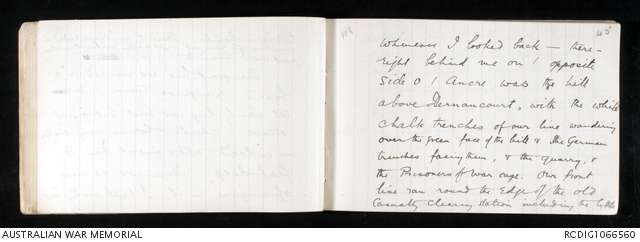 45
Whenever I looked back — there -
right behind me on / opposite
side o / Ancre was the hill
above Dernancourt, with the white
chalk trenches of our line wandering
over the green face of the hill & the German
trenches facing them, & the quarry, &
the Prisoners of War cage. Our front
line ran round the Edge of the old
Casualty Clearing station including the little
AUSTRALIAN WAR MEMORIAL
RCDIG1066560